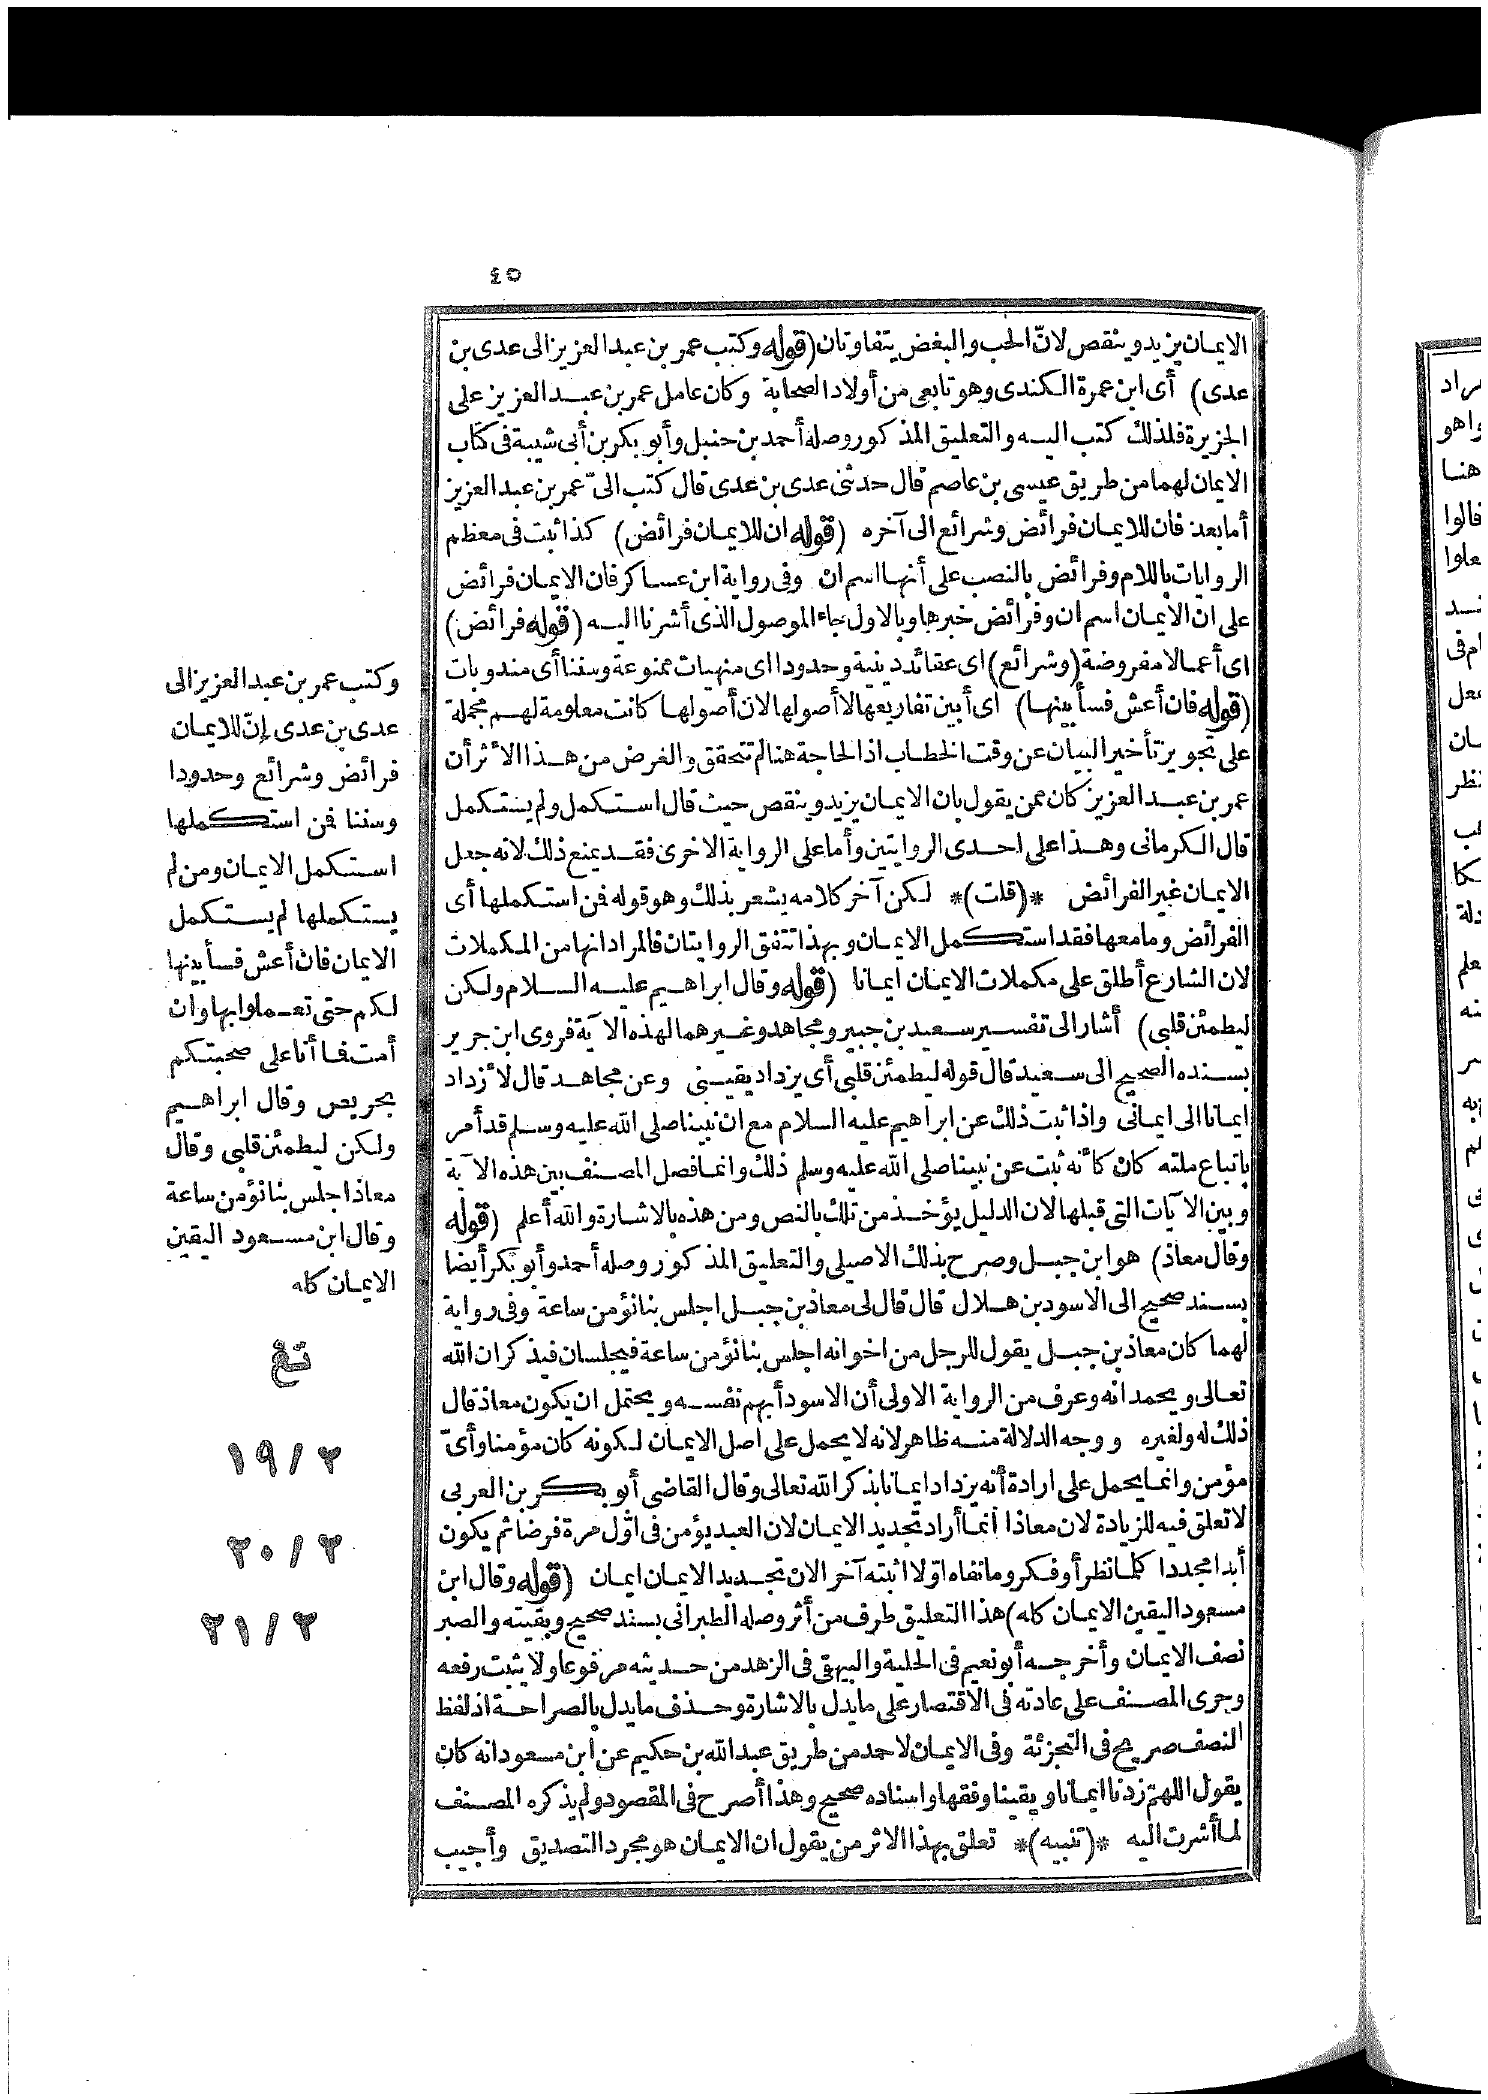 ٤٥
الايمان يزيد وينقص لانّ الحب والبغض يتفاوتان (قوله وكتب عمر بن عبد العزيز الى عدى بن
عدى) أى ابن عمرة الكندى وهو تابعى من أولاد الصحابة وكان عامل عمر بن عبد العزيز على
الجزيرة فلذلك كتب اليه والتعليق المذكور وصله أحمد بن حنبل وأبو بكر بن أبى شيبة فى كتاب
الايمان لهما من طريق عيسى بن عاصم قال حدثنى عدى بن عدى قال كتب الىّ عمر بن عبد العزيز
أما بعد فان للايمان فرائض وشرائع الى آخره (قوله ان للايمان فرائض) كذا ثبت فى معظم
الروايات باللام وفرائض بالنصب على أنها اسم ان وفى رواية ابن عساكر فان الايمان فرائض
على ان الايمان اسم ان وفرائض خبرها وبالاول جاء الموصول الذى أشرنا اليه (قوله فرائض)
اى أعمالا مفروضة (وشرائع) اى عقائد دينية وحدودا اى منهيات ممنوعة وسننا أى مندوبات
(قوله فان أعش فسأبينها) اى أبين تفاريعها لا أصولها لان أصولها كانت معلومة لهم مجملة
على تجويز تأخير البيان عن وقت الخطاب اذ الحاجة هنا لم تتحقق والغرض من هذا الأثر أن
عمر بن عبد العزيز كان ممن يقول بان الايمان يزيد وينقص حيث قال استكمل ولم يستكمل
قال الكرمانى وهذا على احدى الروايتين وأما على الرواية الاخرى فقد يمنع ذلك لانه جعل
الايمان غير الفرائض *(قلت)* لكن آخر كلامه يشعر بذلك وهو قوله فمن استكملها أى
الفرائض وما معها فقد استكمل الايمان وبهذا تتفق الروايتان فالمراد انها من المكملات
لان الشارع أطلق على مكملات الايمان ايمانا (قوله وقال ابراهيم عليه السلام ولكن
ليطمئن قلبى) أشار الى تفسير سعيد بن جبير ومجاهد وغيرهما لهذه الآية فروى ابن جرير
بسنده الصحيح الى سعيد قال قوله ليطمئن قلبى أى يزداد يقينى وعن مجاهد قال لأزداد
ايمانا الى ايمانى واذا ثبت ذلك عن ابراهيم عليه السلام مع ان نبينا صلى الله عليه وسلم قد أمر
باتباع ملته كان كأنه ثبت عن نبينا صلى الله عليه وسلم ذلك وانما فصل المصنف بين هذه الآية
وبين الآيات التى قبلها لان الدليل يؤخذ من تلك بالنص ومن هذه بالاشارة والله أعلم (قوله
وقال معاذ) هو ابن جبل وصرح بذلك الاصيلى والتعليق المذكور وصله أحمد وأبو بكر أيضا
بسند صحيح الى الاسود بن هلال قال قال لى معاذ بن جبل اجلس بنا نؤمن ساعة وفى رواية
لهما كان معاذ بن جبل يقول للرجل من اخوانه اجلس بنا نؤمن ساعة فيجلسان فيذكران الله
تعالى ويحمدانه وعرف من الرواية الاولى أن الاسود أبهم نفسه ويحتمل ان يكون معاذ قال
ذلك له ولغيره ووجه الدلالة منه ظاهر لانه لا يحمل على اصل الايمان لكونه كان مؤمنا وأىّ
مؤمن وانما يحمل على ارادة أنه يزداد ايمانا بذكر الله تعالى وقال القاضى أبو بكر بن العربى
لا تعلق فيه للزيادة لان معاذا انما أراد تجديد الايمان لان العبد يؤمن فى اوّل مرة فرضا ثم يكون
أبدا مجددا كلما نظر أو فكر وما نفاه اوّلا اثبته آخر الان تجديد الايمان ايمان (قوله وقال ابن
مسعود اليقين الايمان كله) هذا التعليق طرف من أثر وصله الطبرانى بسند صحيح وبقيته والصبر
نصف الايمان وأخرجه أبو نعيم فى الحلية والبيهقى فى الزهد من حديثه مرفوعا ولا يثبت رفعه
وجرى المصنف على عادته فى الاقتصار على ما يدل بالاشارة وحذف ما يدل بالصراحة اذ لفظ
النصف صريح فى التجزئة وفى الايمان لاحمد من طريق عبد الله بن حكيم عن ابن مسعود انه كان
يقول اللهمّ زدنا ايمانا ويقينا وفقها واسناده صحيح وهذا أصرح فى المقصود ولم يذكره المصنف
لما أشرت اليه *(تنبيه)* تعلق بهذا الاثر من يقول ان الايمان هو مجرد التصديق وأجيب
وكتب عمر بن عبد العزيز الى
عدى بن عدى إنّ للايمان
فرائض وشرائع وحدودا
وسننا فمن استكملها
استكمل الايمان ومن لم
يستكملها لم يستكمل
الايمان فان أعش فسأبينها
لكم حتى تعملوا بها وان
أمت فما أنا على صحبتكم
بحريص وقال ابراهيم
ولكن ليطمئن قلبى وقال
معاذ اجلس بنا نؤمن ساعة
وقال ابن مسعود اليقين
الايمان كله
تغ
١٩/٢
٢٠/٢
٢١/٢
راد
واهو
هنا
قالوا
علوا
ام فى
نظر
دلة
علم